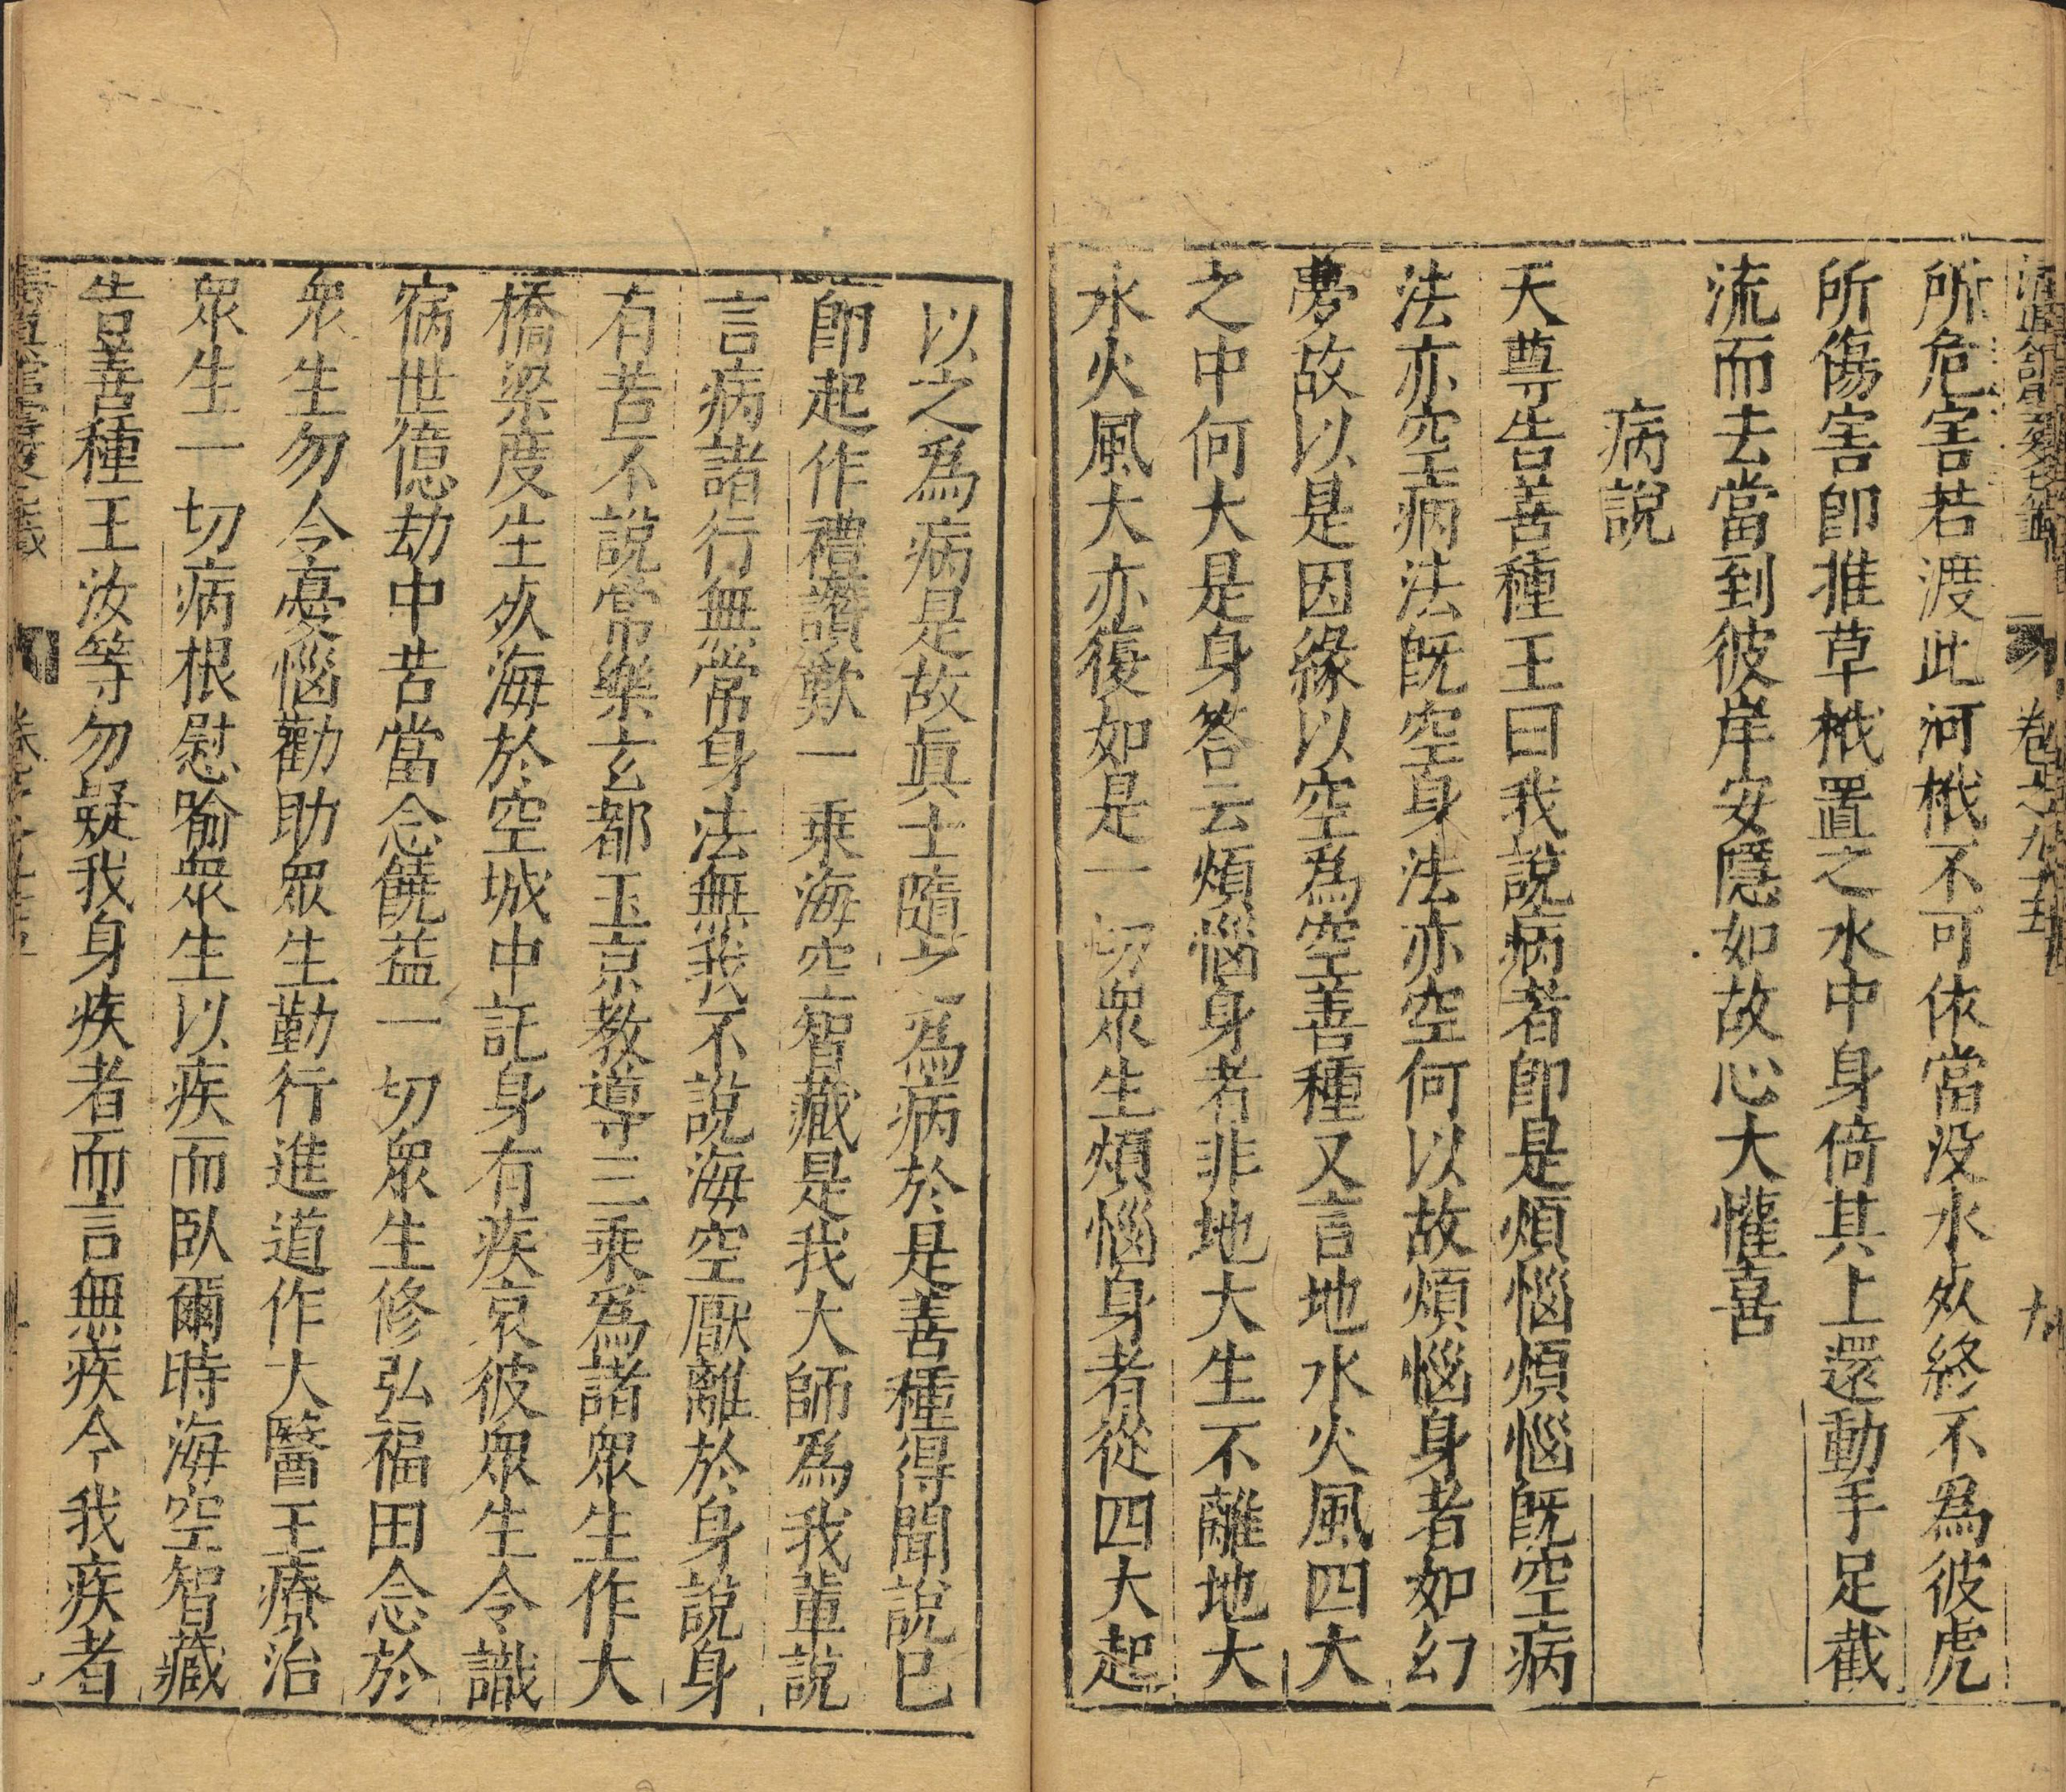 所危害若渡此河栰不可依當没水死終不為彼虎
所傷害即推草栰置之水中身倚其上還動手足截
流而去當到彼岸安隱如故心大懽喜
病說
天尊告善種王曰我說病者即是煩惱煩惱旣空病
法亦空病法旣空身法亦空何以故煩惱身者如幻
夢故以是因緣以空為空善種又言地水火風四大
之中何大是身答云煩惱身者非地大生不離地大
水火風大亦復如是一切衆生煩惱身者從四大起
以之為病是故眞士隨之為病於是善種得聞說已
即起作禮讚歎一乘海空智藏是我大師為我輩說
言病諸行無常身法無我不說海空厭離於身說身
有苦不說常樂玄都玉京教導三乘為諸眾生作大
橋梁度生死海於空城中託身有疾哀彼眾生令識
宿世億劫中苦當念饒益一切眾生修弘福田念於
衆生勿令憂惱勸助眾生勤行進道作大醫王療治
眾生一切病根慰喻衆生以疾而臥爾時海空智藏
告善種王汝等勿疑我身疾者而言無疾今我疾者